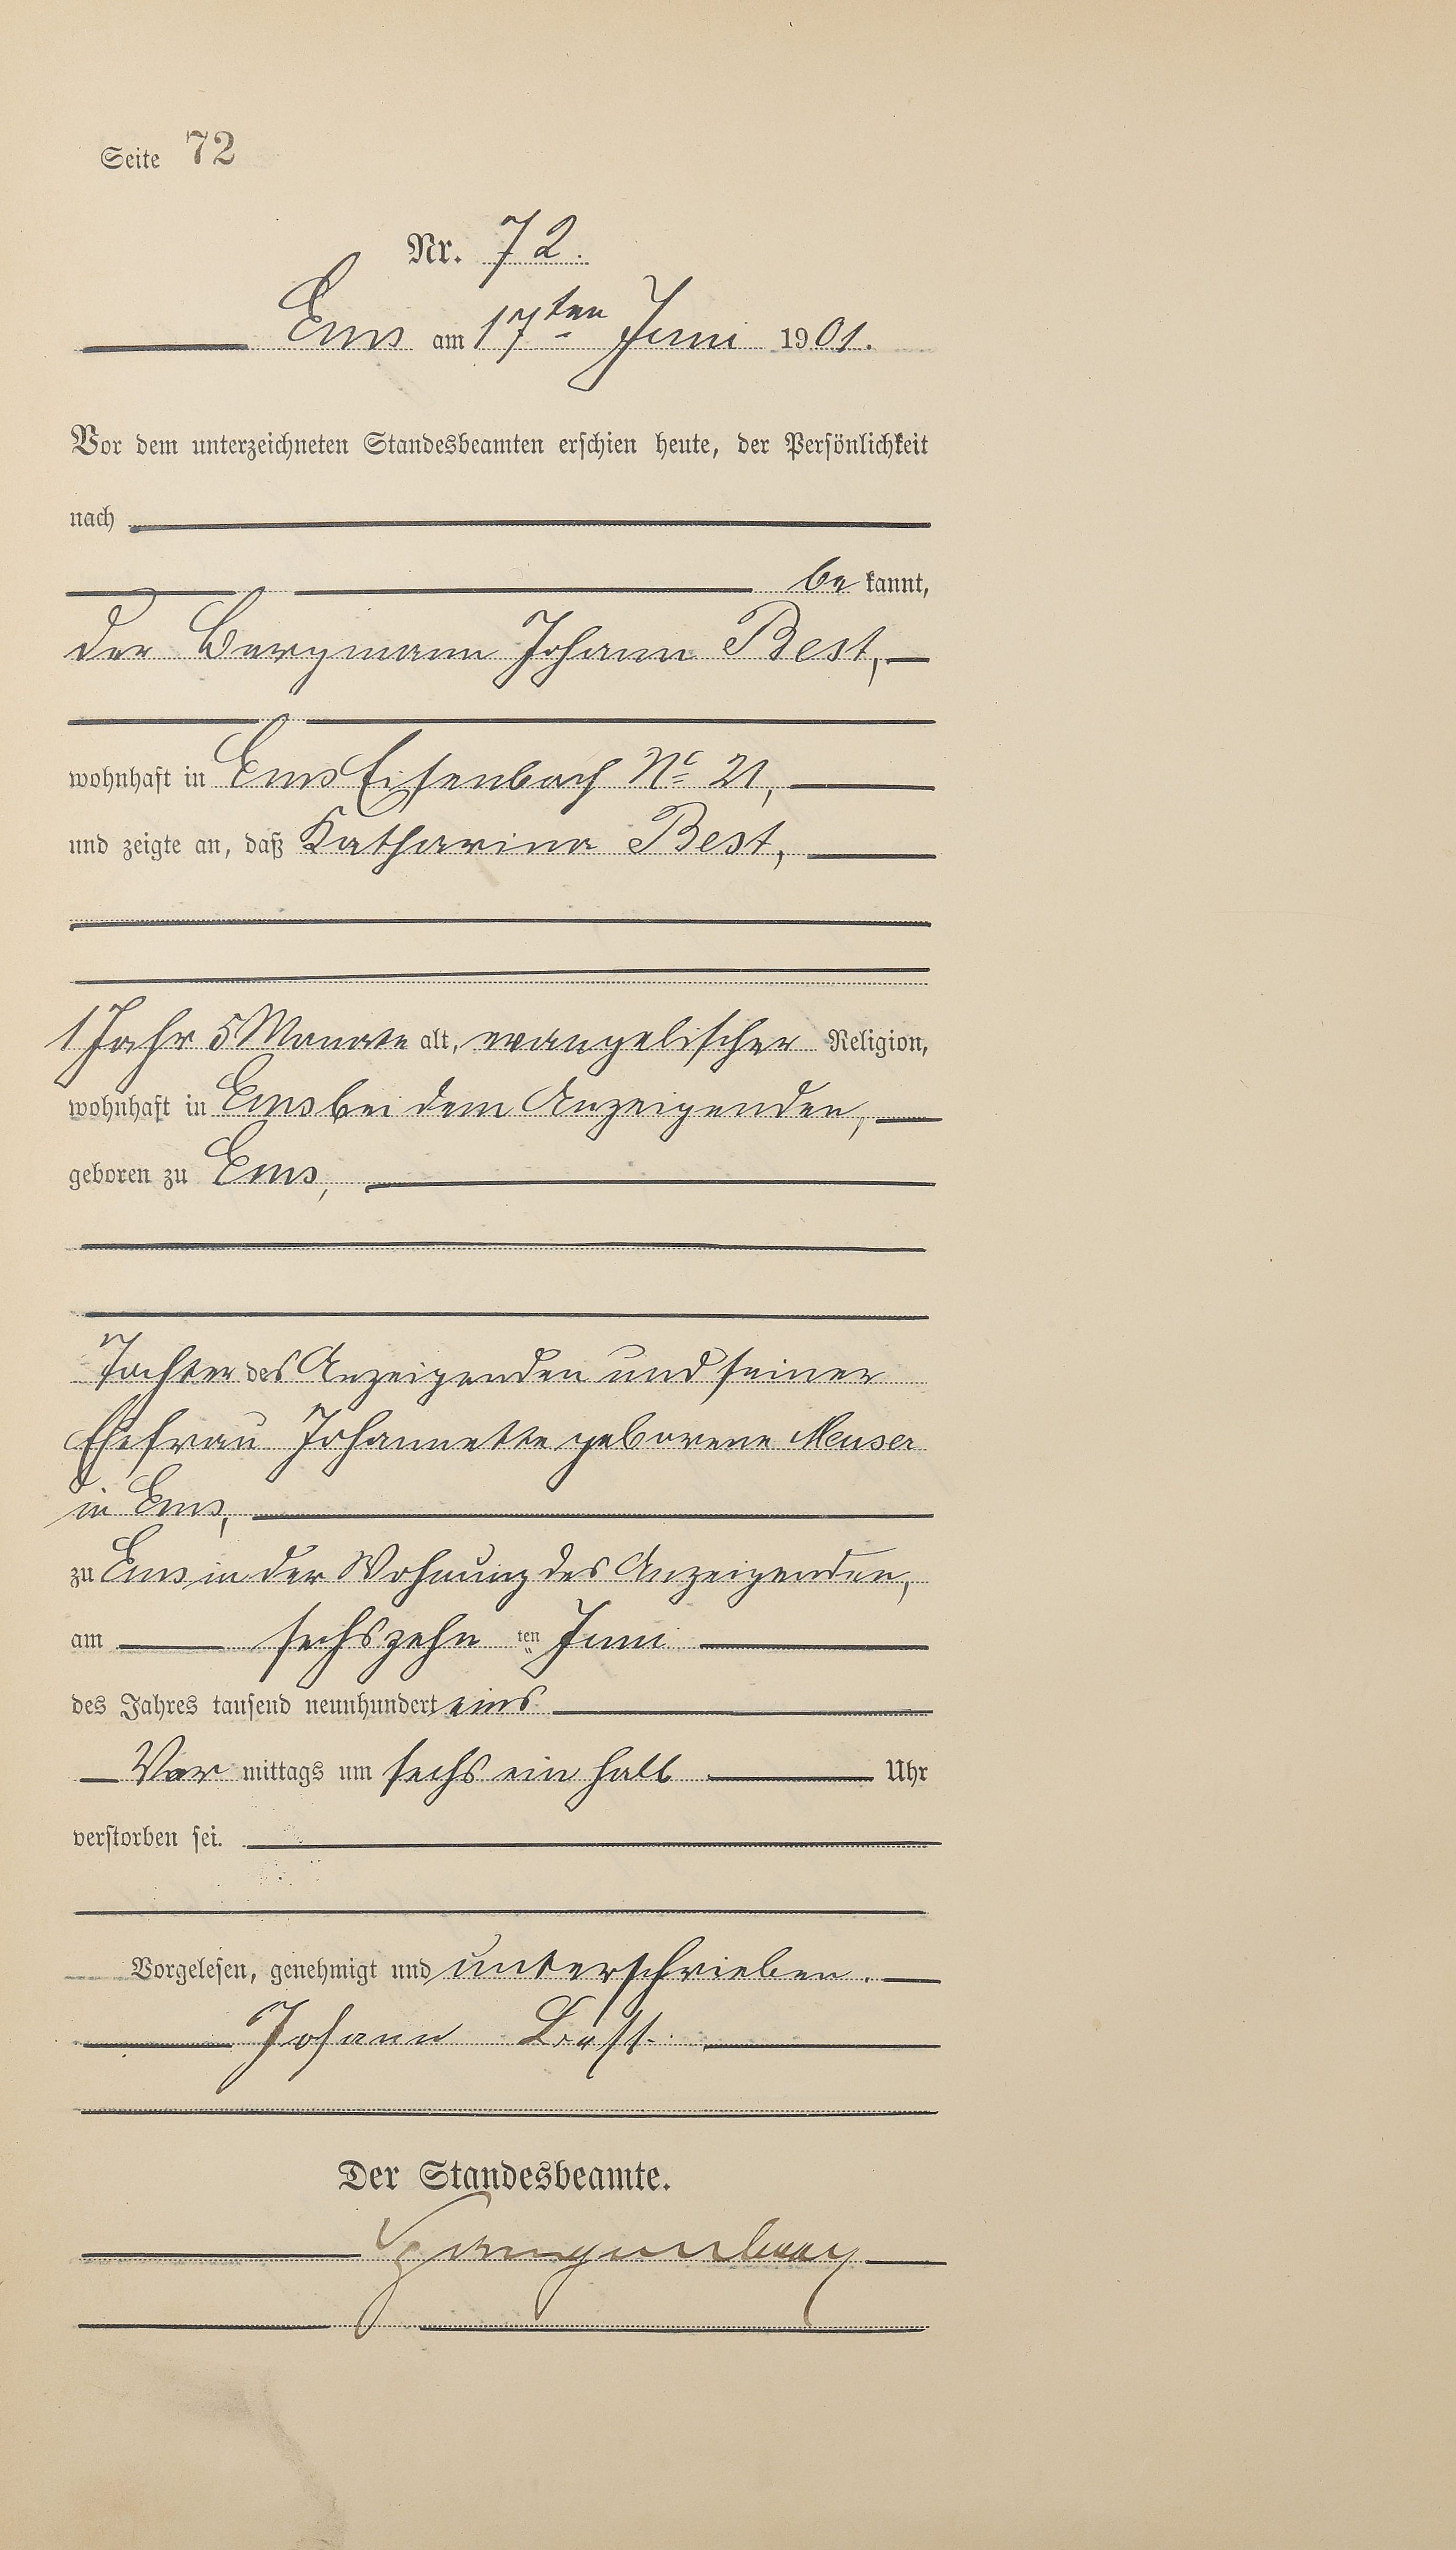 Seite 72
Nr. 72.
Ems am 17ten Juni 1901.
Vor dem unterzeichneten Standesbeamten erschien heute, der Persönlichkeit
nach
be kannt,
der Bergmann Johann Best,
wohnhaft in Ems Eisenbach No 21,
und zeigte an, daß Katharina Best,
1 Jahr 5 Monate alt, evangelischer Religion,
wohnhaft in Ems bei dem Anzeigenden,
geboren zu Ems,
Tochter des Anzeigenden und seiner
Ehefrau Johannette geborene Meuser
in Ems,
zu Ems in der Wohnung des Anzeigenden,
am sechszehn ten Juni
des Jahres tausend neunhundert eins
Vor mittags um sechs ein halb Uhr
verstorben sei.
Vorgelesen, genehmigt und unterschrieben.
Johann Best.
Der Standesbeamte.